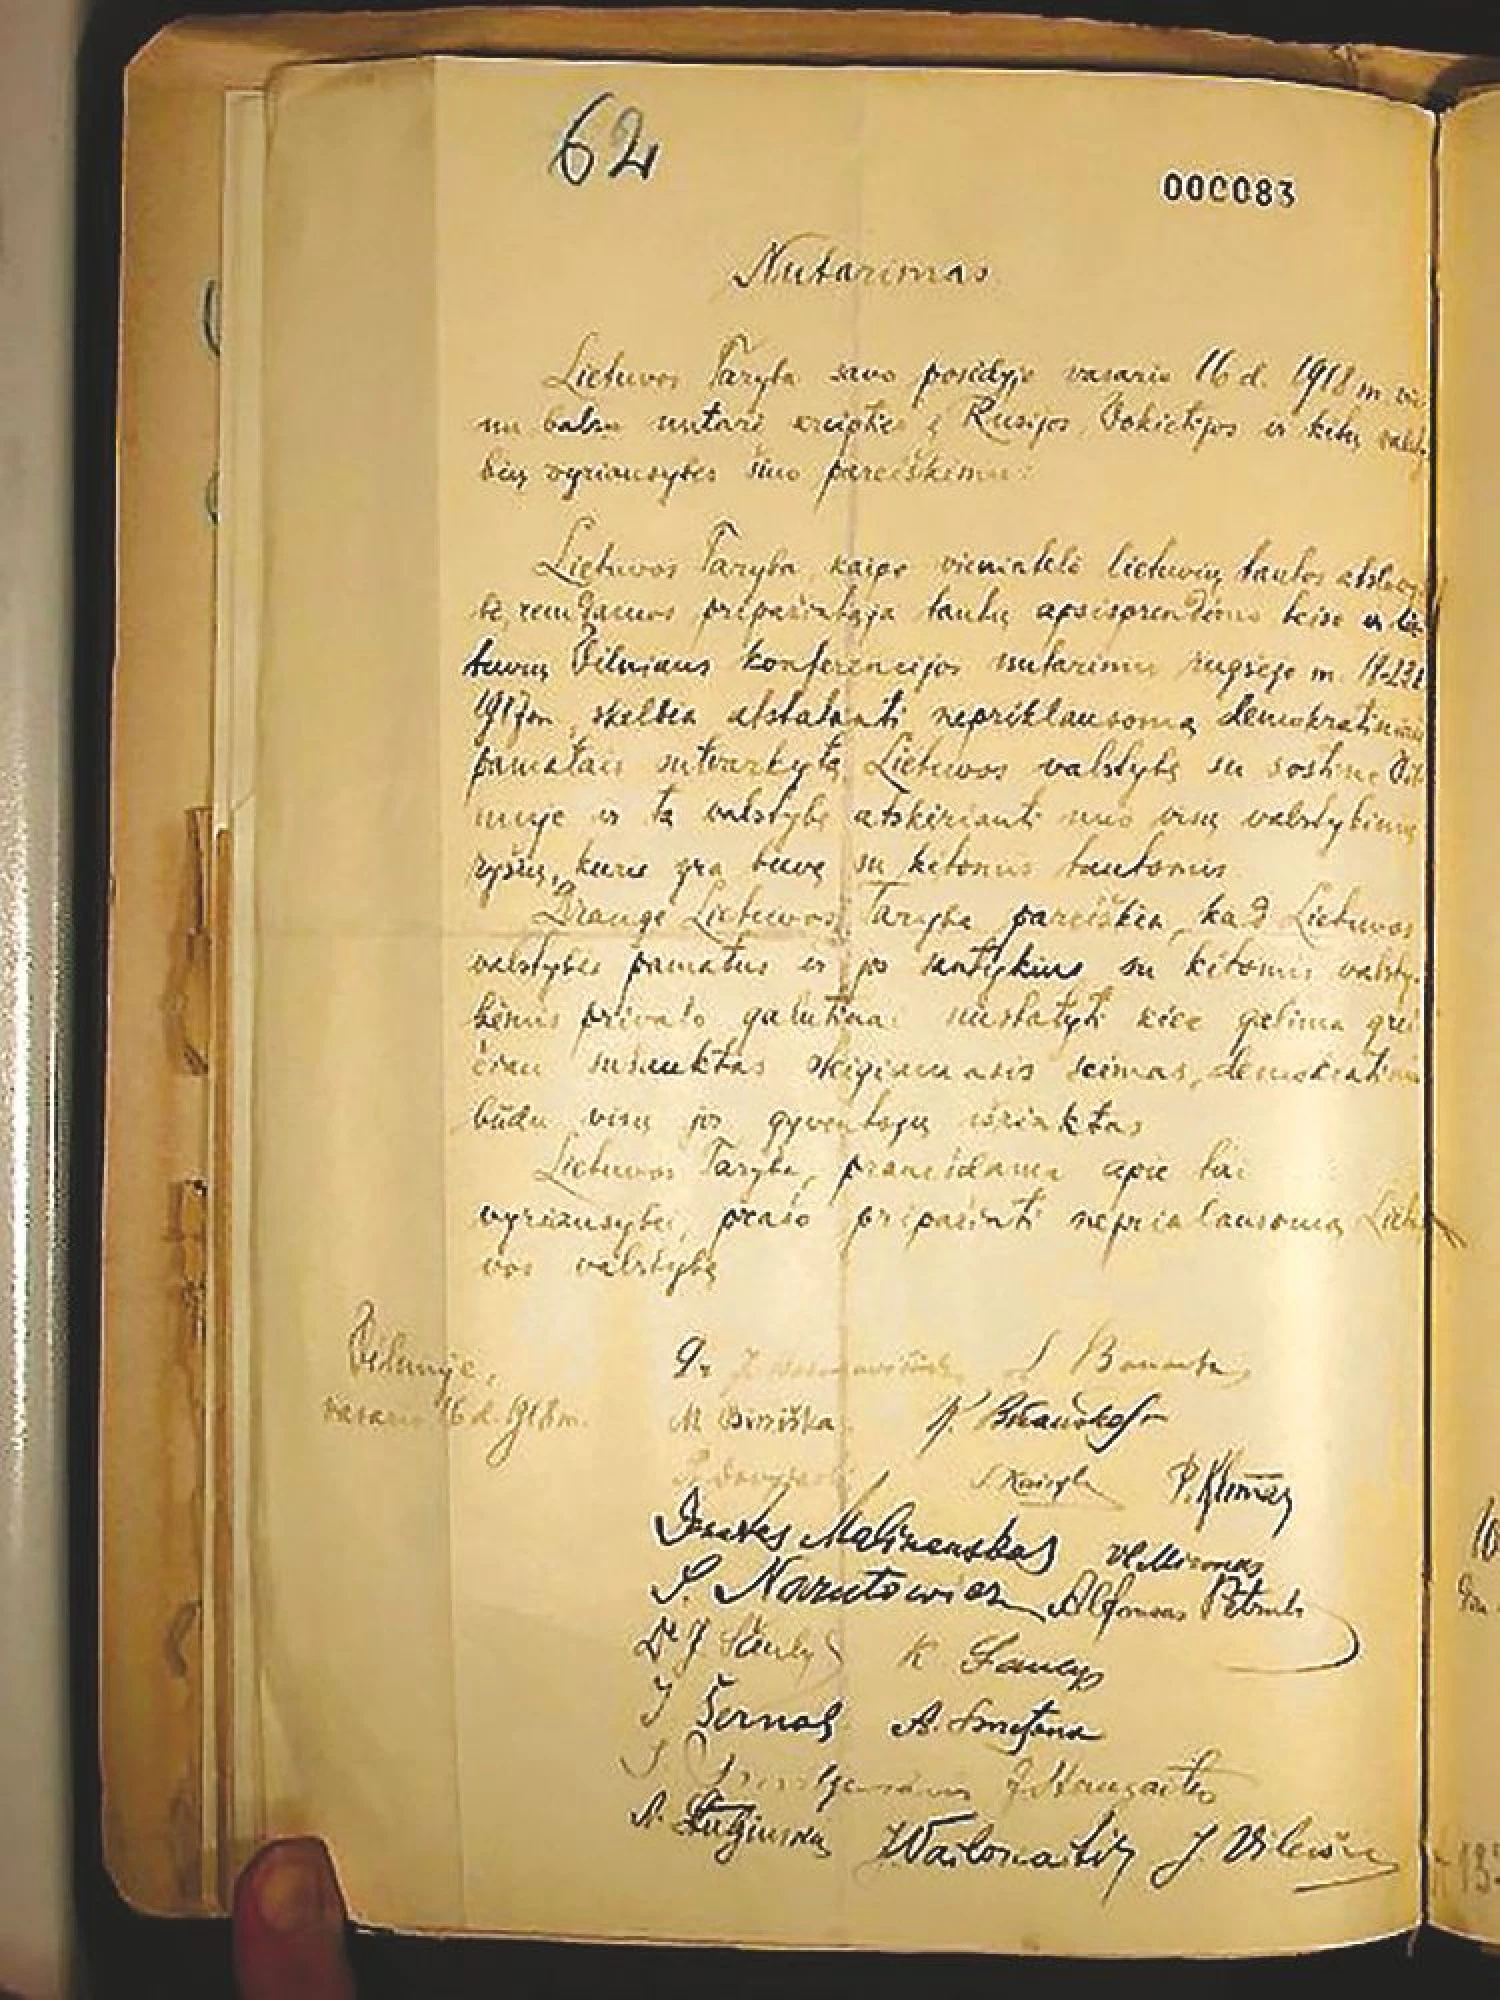 62
000083
Nutarimas
Lietuvos Taryba savo posėdyje vasario 16 d. 1918 m. vie-
nu balsu nutarė kreiptis į Rusijos, Vokietijos ir kitų valsty-
bių vyriausybes šiuo pareiškimu:
Lietuvos Taryba, kaipo vienintelė lietuvių tautos atstovy-
bė, remdamos pripažintąja tautų apsisprendimo teise ir lie-
tuvių Vilniaus konferencijos nutarimu rugsėjo m. 18-23 d.
1917 m., skelbia atstatanti nepriklausomą demokratiniais
pamatais sutvarkytą Lietuvos valstybę su sostine Vil-
niuje ir tą valstybę atskirianti nuo visų valstybinių
ryšių, kurie yra buvę su kitomis tautomis.
Drauge Lietuvos Taryba pareiškia, kad Lietuvos
valstybės pamatus ir jos santykius su kitomis valsty-
bėmis privalo galutinai nustatyti kiek galima grei-
čiau sušauktas steigiamasis seimas, demokratiniu
būdu visų jos gyventojų išrinktas.
Lietuvos Taryba, pranešdama apie tai
vyriausybei, prašo pripažinti nepriklausomą Lietu-
vos valstybę
Vilniuje,
vasario 16 d. 1918 m.
Dr. J. Basanavičius S. Banaitis
M. Biržiška K. Bizauskas
S. Kairys P. Klimas
Donatas Malinauskas Vl. Mironas
S. Narutowicz Alfonsas Petrulis
Dr J. Šaulys K. Šaulys
J. Šernas A. Smetona
J. Smilgevičius J. Staugaitis
A. Stulginskis J. Wailokaitis J. Vileišis